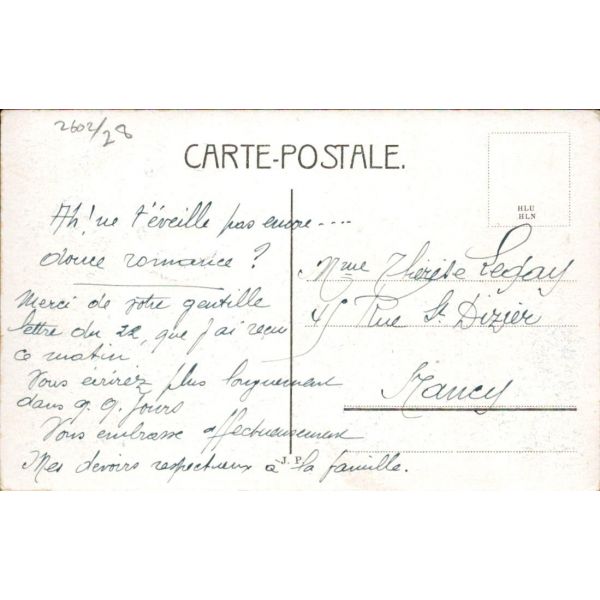 2602/28
CARTE-POSTALE.
HLU
HLN
Ah! ne t'éveille pas encore....
douce romance ?
Merci de votre gentille
lettre du 22, que j'ai reçu
ce matin
Vous écrirez plus longuement
dans q. q. jours
Vous embrasse affectueusement
Mes devoirs respectueux à la famille.
Mme Thérèse Legay
45 Rue St. Dizier
Nancy
J. P.